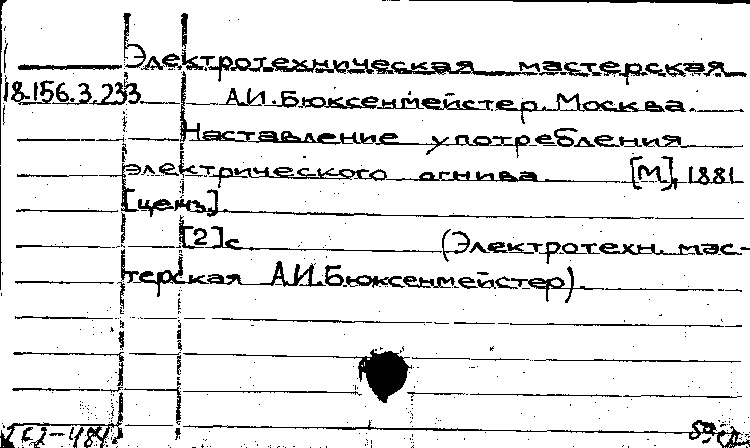 Электротехническая мастерская
18.156.3.233 А.И.Бюксенмейстер. Москва.
Наставление употребления
электрического огнива. [М], 1881
[ценз.].
[2]с. (Электротехн. мас-
терская А.И.Бюксенмейстер).